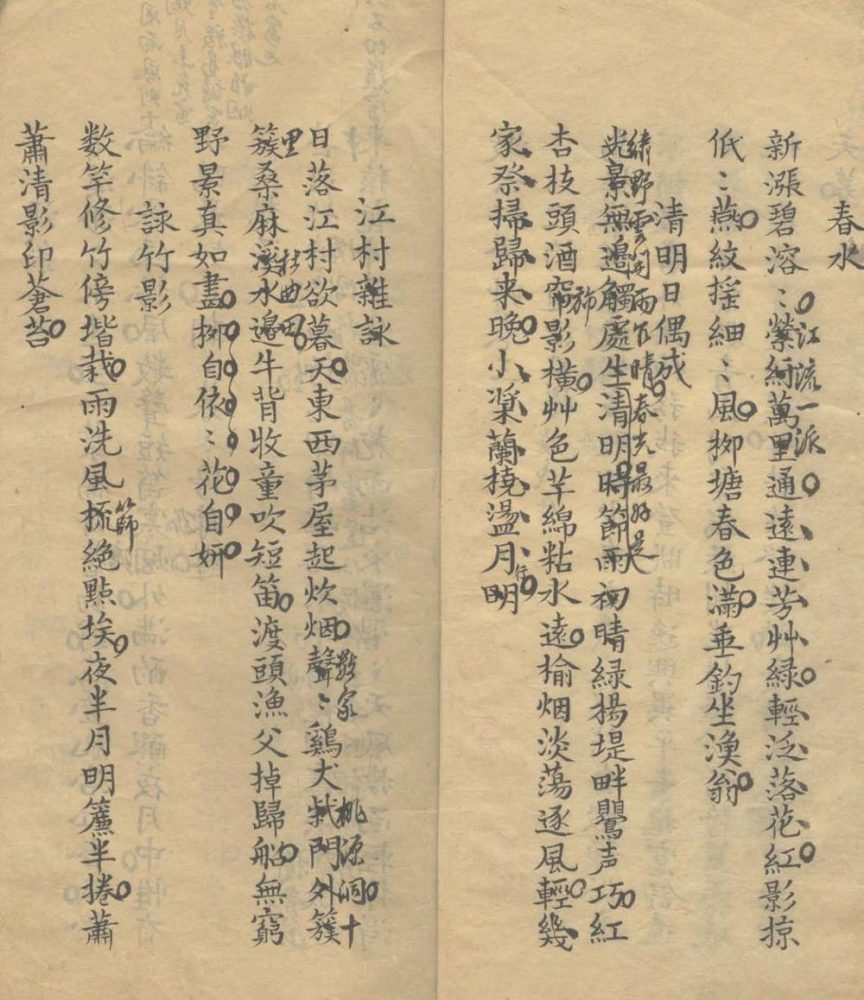 春水
新漲碧溶〻縈紆萬里通遠連芳艸緑輕泛落花紅影掠
江流一派
低〻燕紋揺細〻風栁塘春色滿垂釣坐漁翁
清明日偶成
緑野雲開雨乍晴春光最好是
光景無邊觸處生清明時節雨初晴緑楊堤畔鸎声巧紅
杏枝頭酒帘影橫艸色芊綿粘水遠榆烟淡蕩逐風輕幾
斾
家祭掃歸来晚小槳蘭橈盪月明
行
江村雜詠
日落江村欲暮天東西茅屋起炊烟聲〻鷄犬柴門外簇
數家
桃源洞十
里
簇桑麻溪水邉牛背牧童吹短笛渡頭漁父掉歸船無窮
杜曲田
野景真如畫栁自依〻花自妍
詠竹影
数竿修竹傍堦栽雨洗風梳絕點埃夜半月明簾半捲蕭
篩
蕭清影印蒼苔